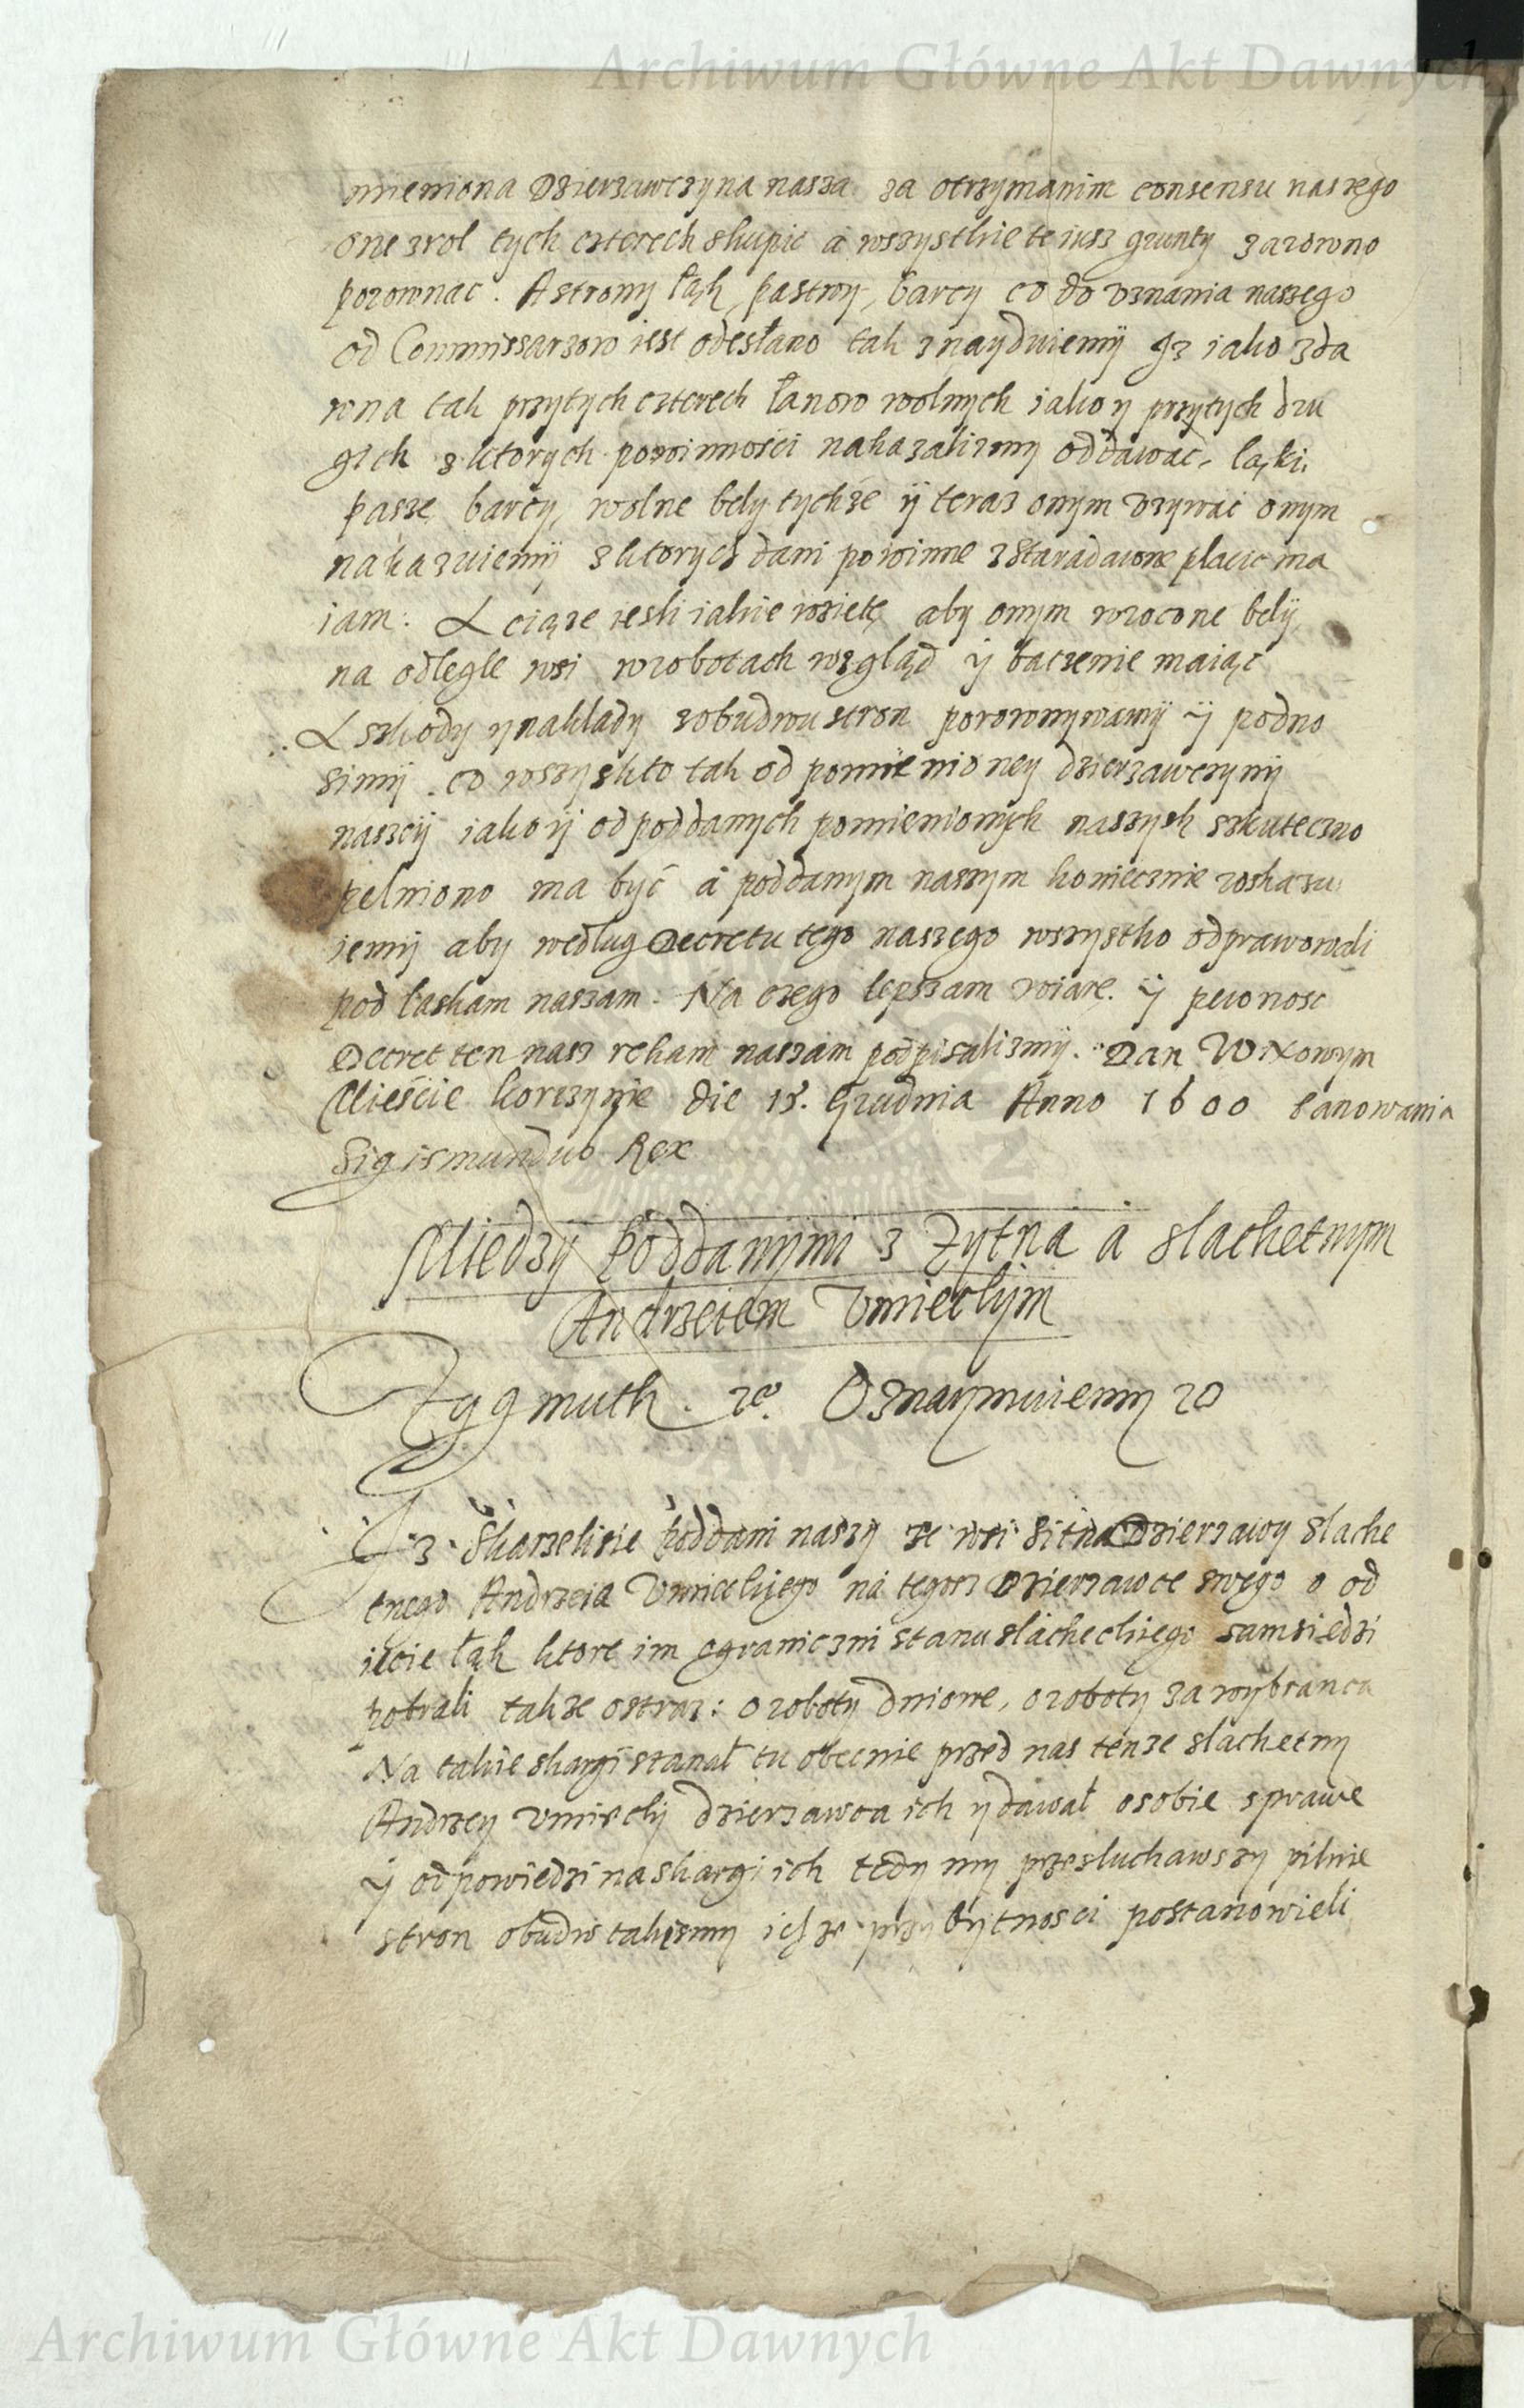 Archiwum Główne Akt Dawnych
mieniona Dzierzawczyna nasza za otrzymanim consensu naszego
one z rol tych czterech skupic á wszystkie te iusz grunty zarowno
porownac. A strony łąk, pastwy, barcy co do vznania naszego
od Commissarzow iest odesłano tak znayduiemÿ Jz iako zda
wna tak przytych czterech łanow wolnych iako y przytych dru
gich z ktorych powinności nakazalismy oddawac, ląki,
pasze, barcy, wolne bely tychże ÿ teraz onym vzywac onym
nakazuiemÿ z ktorych dani powinne z staradawne placic ma
iam: A ciąze iesli iakie wzietę aby onym wrocone belÿ,
na odlegle wsi w robotach wzgląd ÿ baczenie maiąc
A szkody y naklady z obudwu stron porownywamÿ ÿ podno
simÿ. co wszyskto tak od pomienioney dzierzawczynÿ
naszeÿ iako ÿ od poddanych pomienionych naszych skuteczno
pelniono ma być á poddanym naszym koniecznie roskazu
iemÿ aby według Decretu tego naszego wszystko odprawowali
pod laskam naszam. Na czego lepszam wiarę. ÿ pewnosc
Decret ten nasz rekam naszam podpisalismÿ. Dan W Nowym
Mieście Korczynie die 15. Grudnia Anno 1600 Panowania
Sigismundus Rex
Miedzy Poddanÿmi z Zytna á slachetnym
Andrzeiem Vmieckim
Zygmuth. Oznaymuiemy
Jz Skarzelisie poddani naszy ze wsi Sitna Dzierzawy slache
tnego Andrzeia Vmieckiego ná tegosz Dzierzawce swego o od
ięcie łąk ktore im ograniczni stanu slácheckiego samsiedzi
pobrali takze o straz: o roboty dniowe, o roboty za wybranca
Na takie skargi stanał tu obecnie przed nas tenze slachetny
Andrzey Vmiecki dzierzawca ich y dawał o sobie sprawe
ÿ odpowiedzi na skargi ich tedy my przesluchawszy pilnie
stron obudw takesmy ich ze przybytnosci postanowieli
Archiwum Główne Akt Dawnych